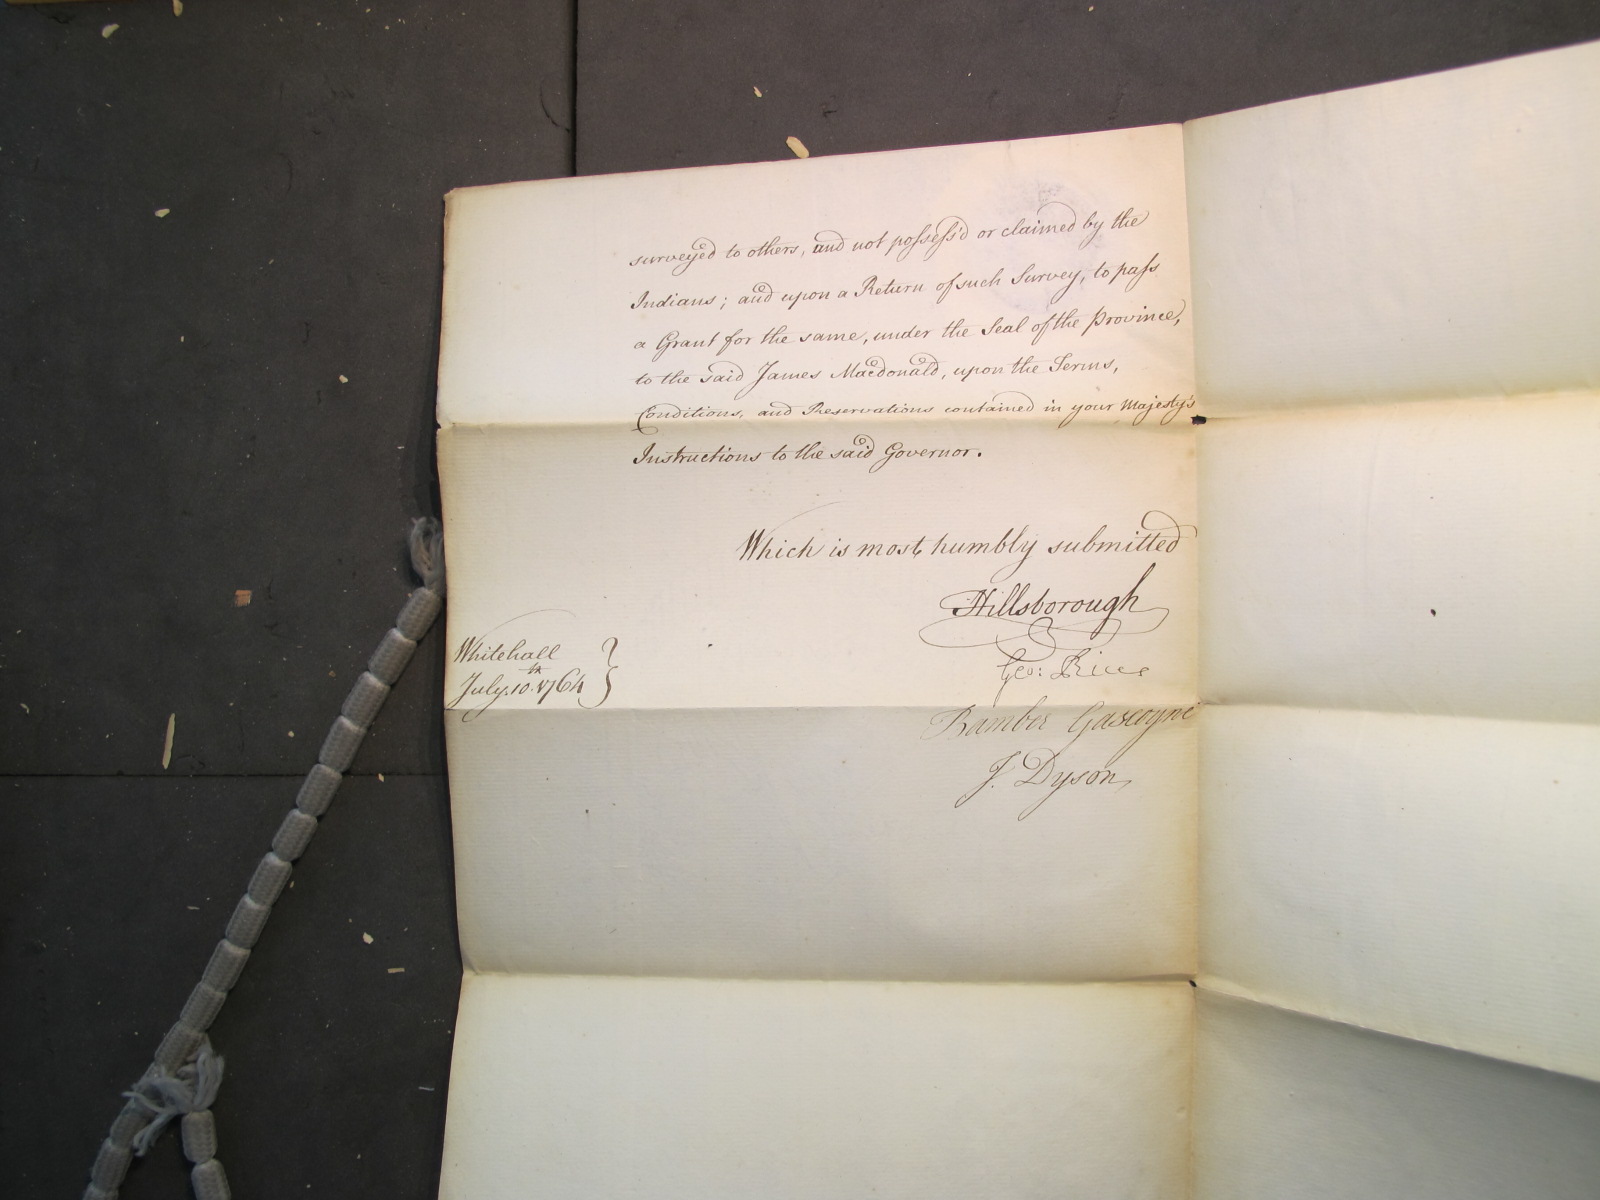 surveyed to others, and not possess'd or claimed by the
Indians; and upon a Return of such Survey, to pass
a Grant for the same, under the Seal of the Province,
to the said James Macdonald, upon the Terms,
Conditions, and Reservations contained in your Majesty's
Instructions to the said Governor.
Which is most humbly submitted
Hillsborough
Geo: Rice
Bamber Gascoyne
J. Dyson
Whitehall
July 10th 1764